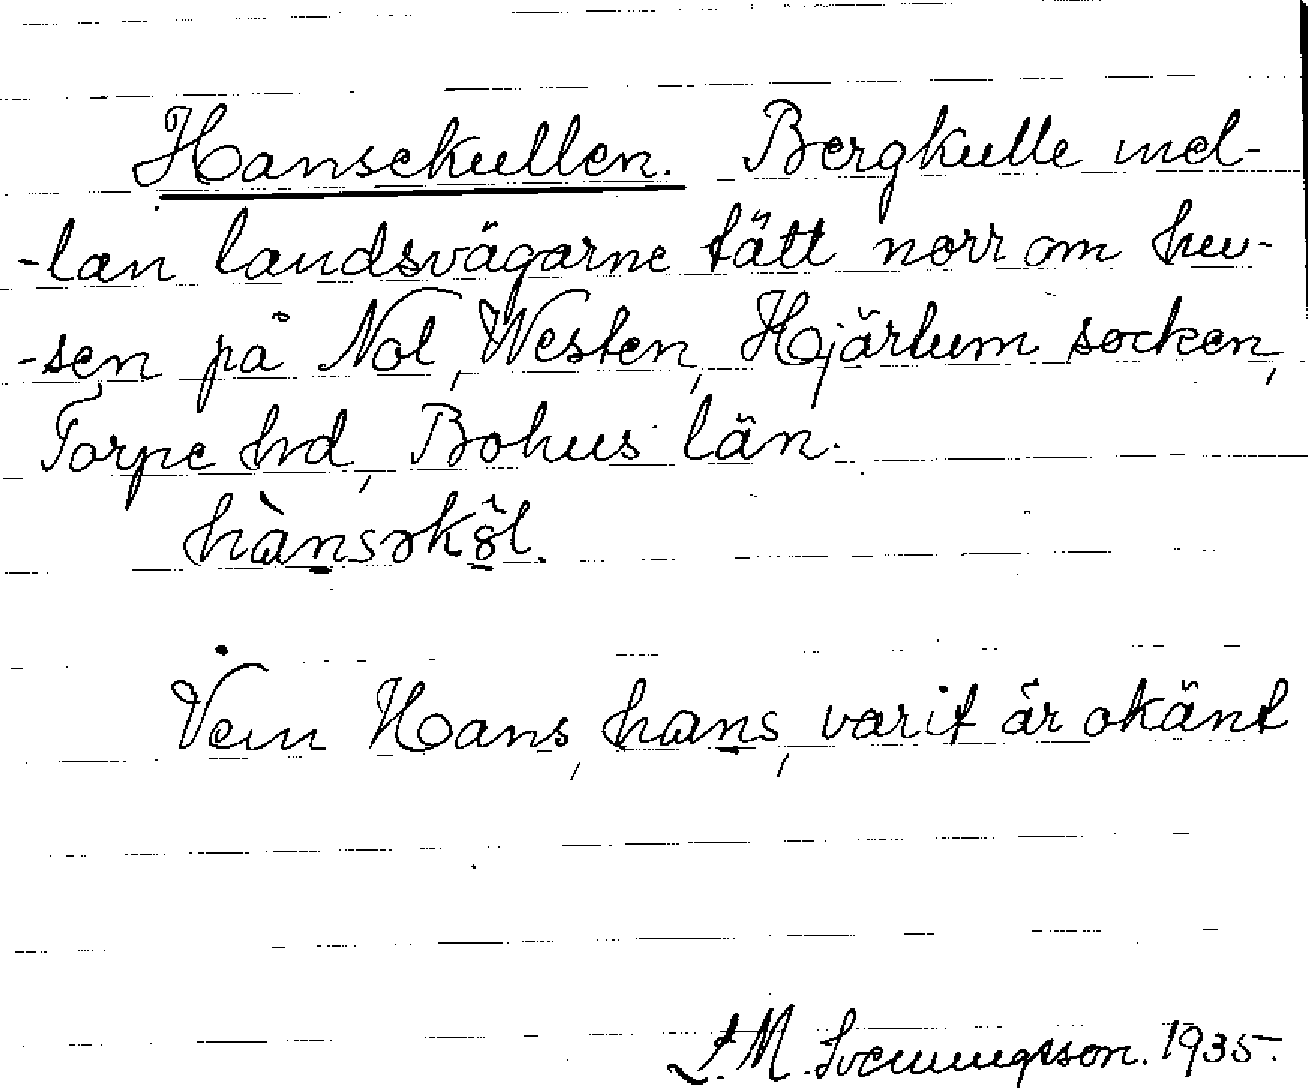 Hansekullen. Bergkulle mel-
-lan landsvägarne tätt norr om hu-
-sen på Nol, Westen, Hjärtum socken,
Torpe hrd, Bohus län.
Vem Hans, hans, varit är okänt
L. M. Svenungsson. 1935.